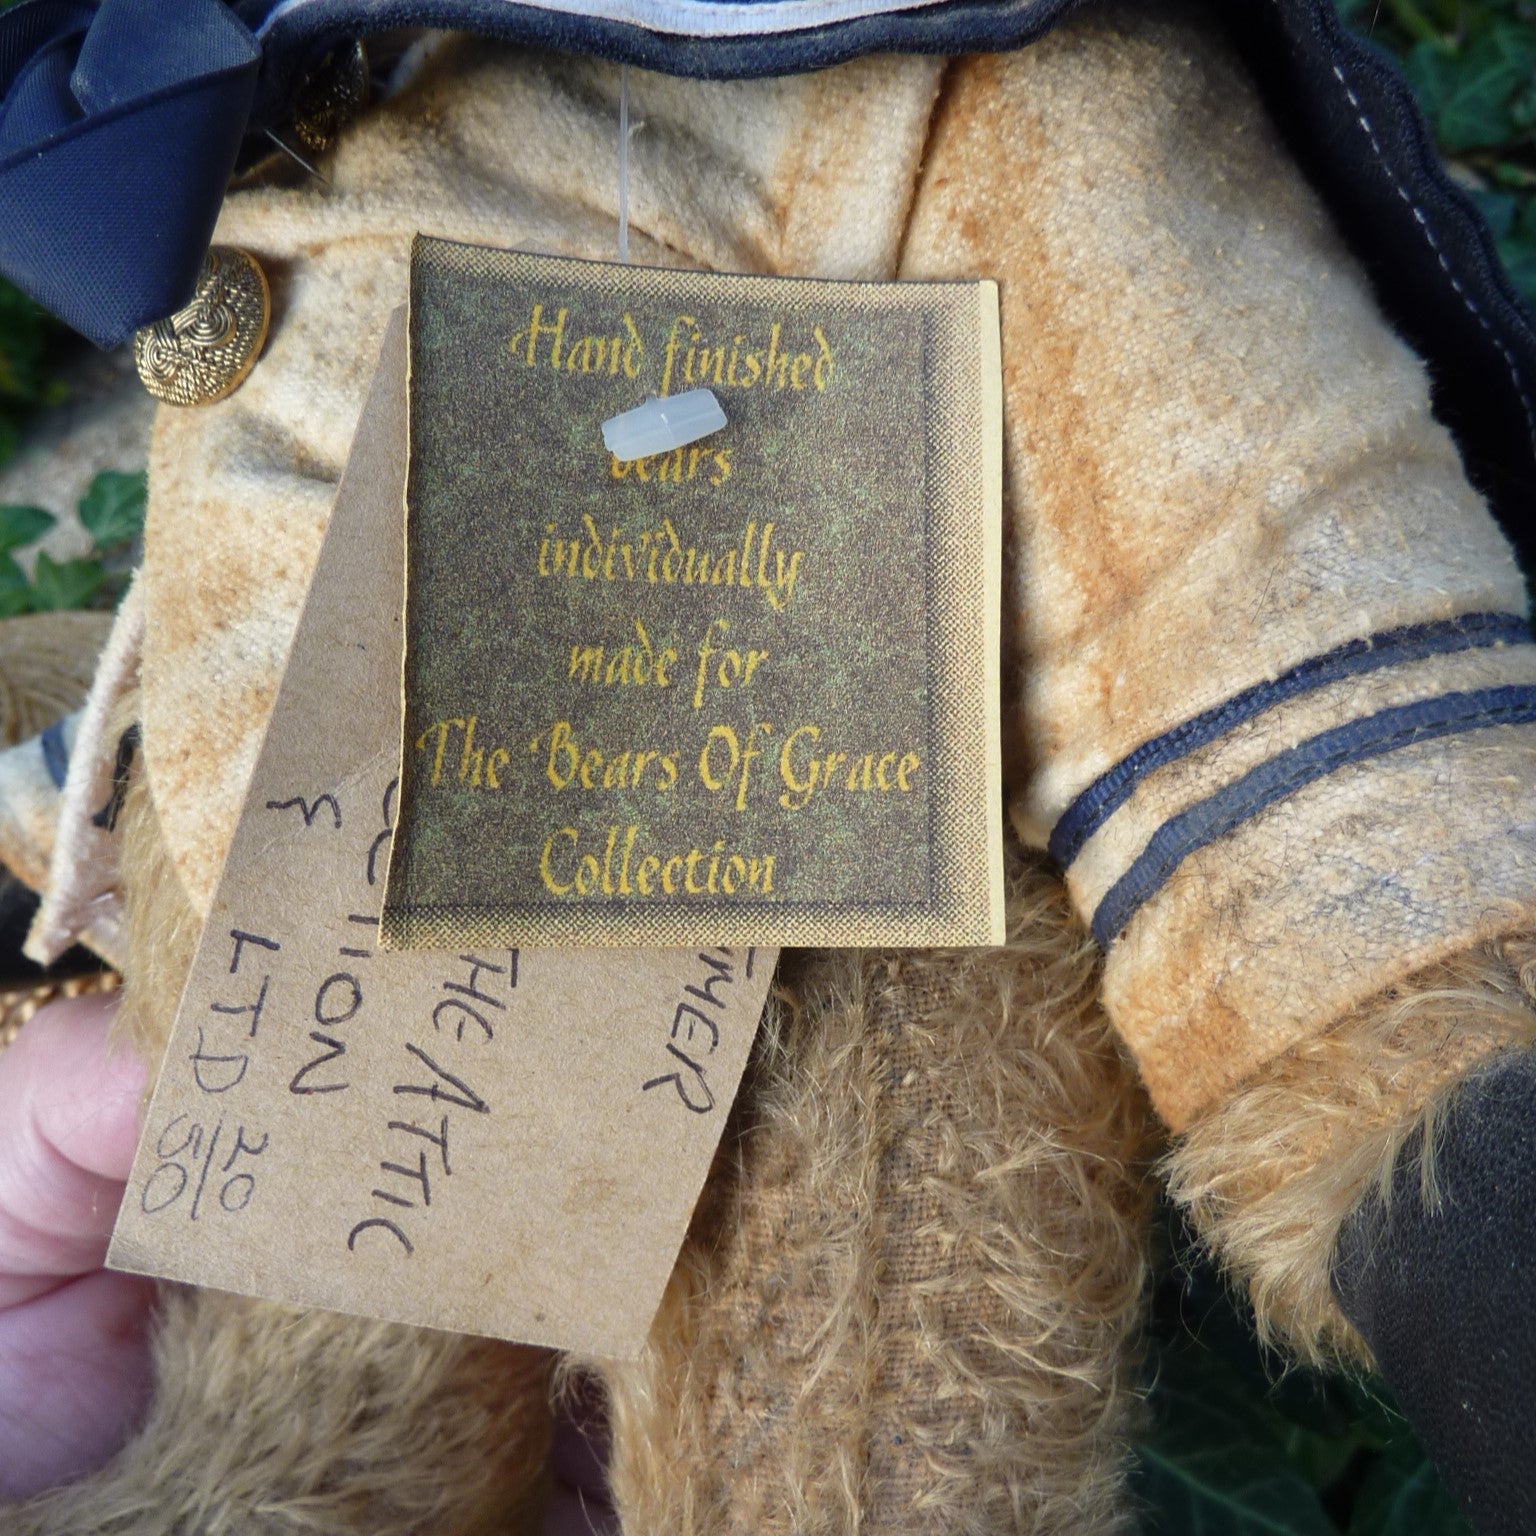 Hand finished
bears
individually
made for
The Bears Of Grace
Collection
THE ATTIC
LTD 20/50